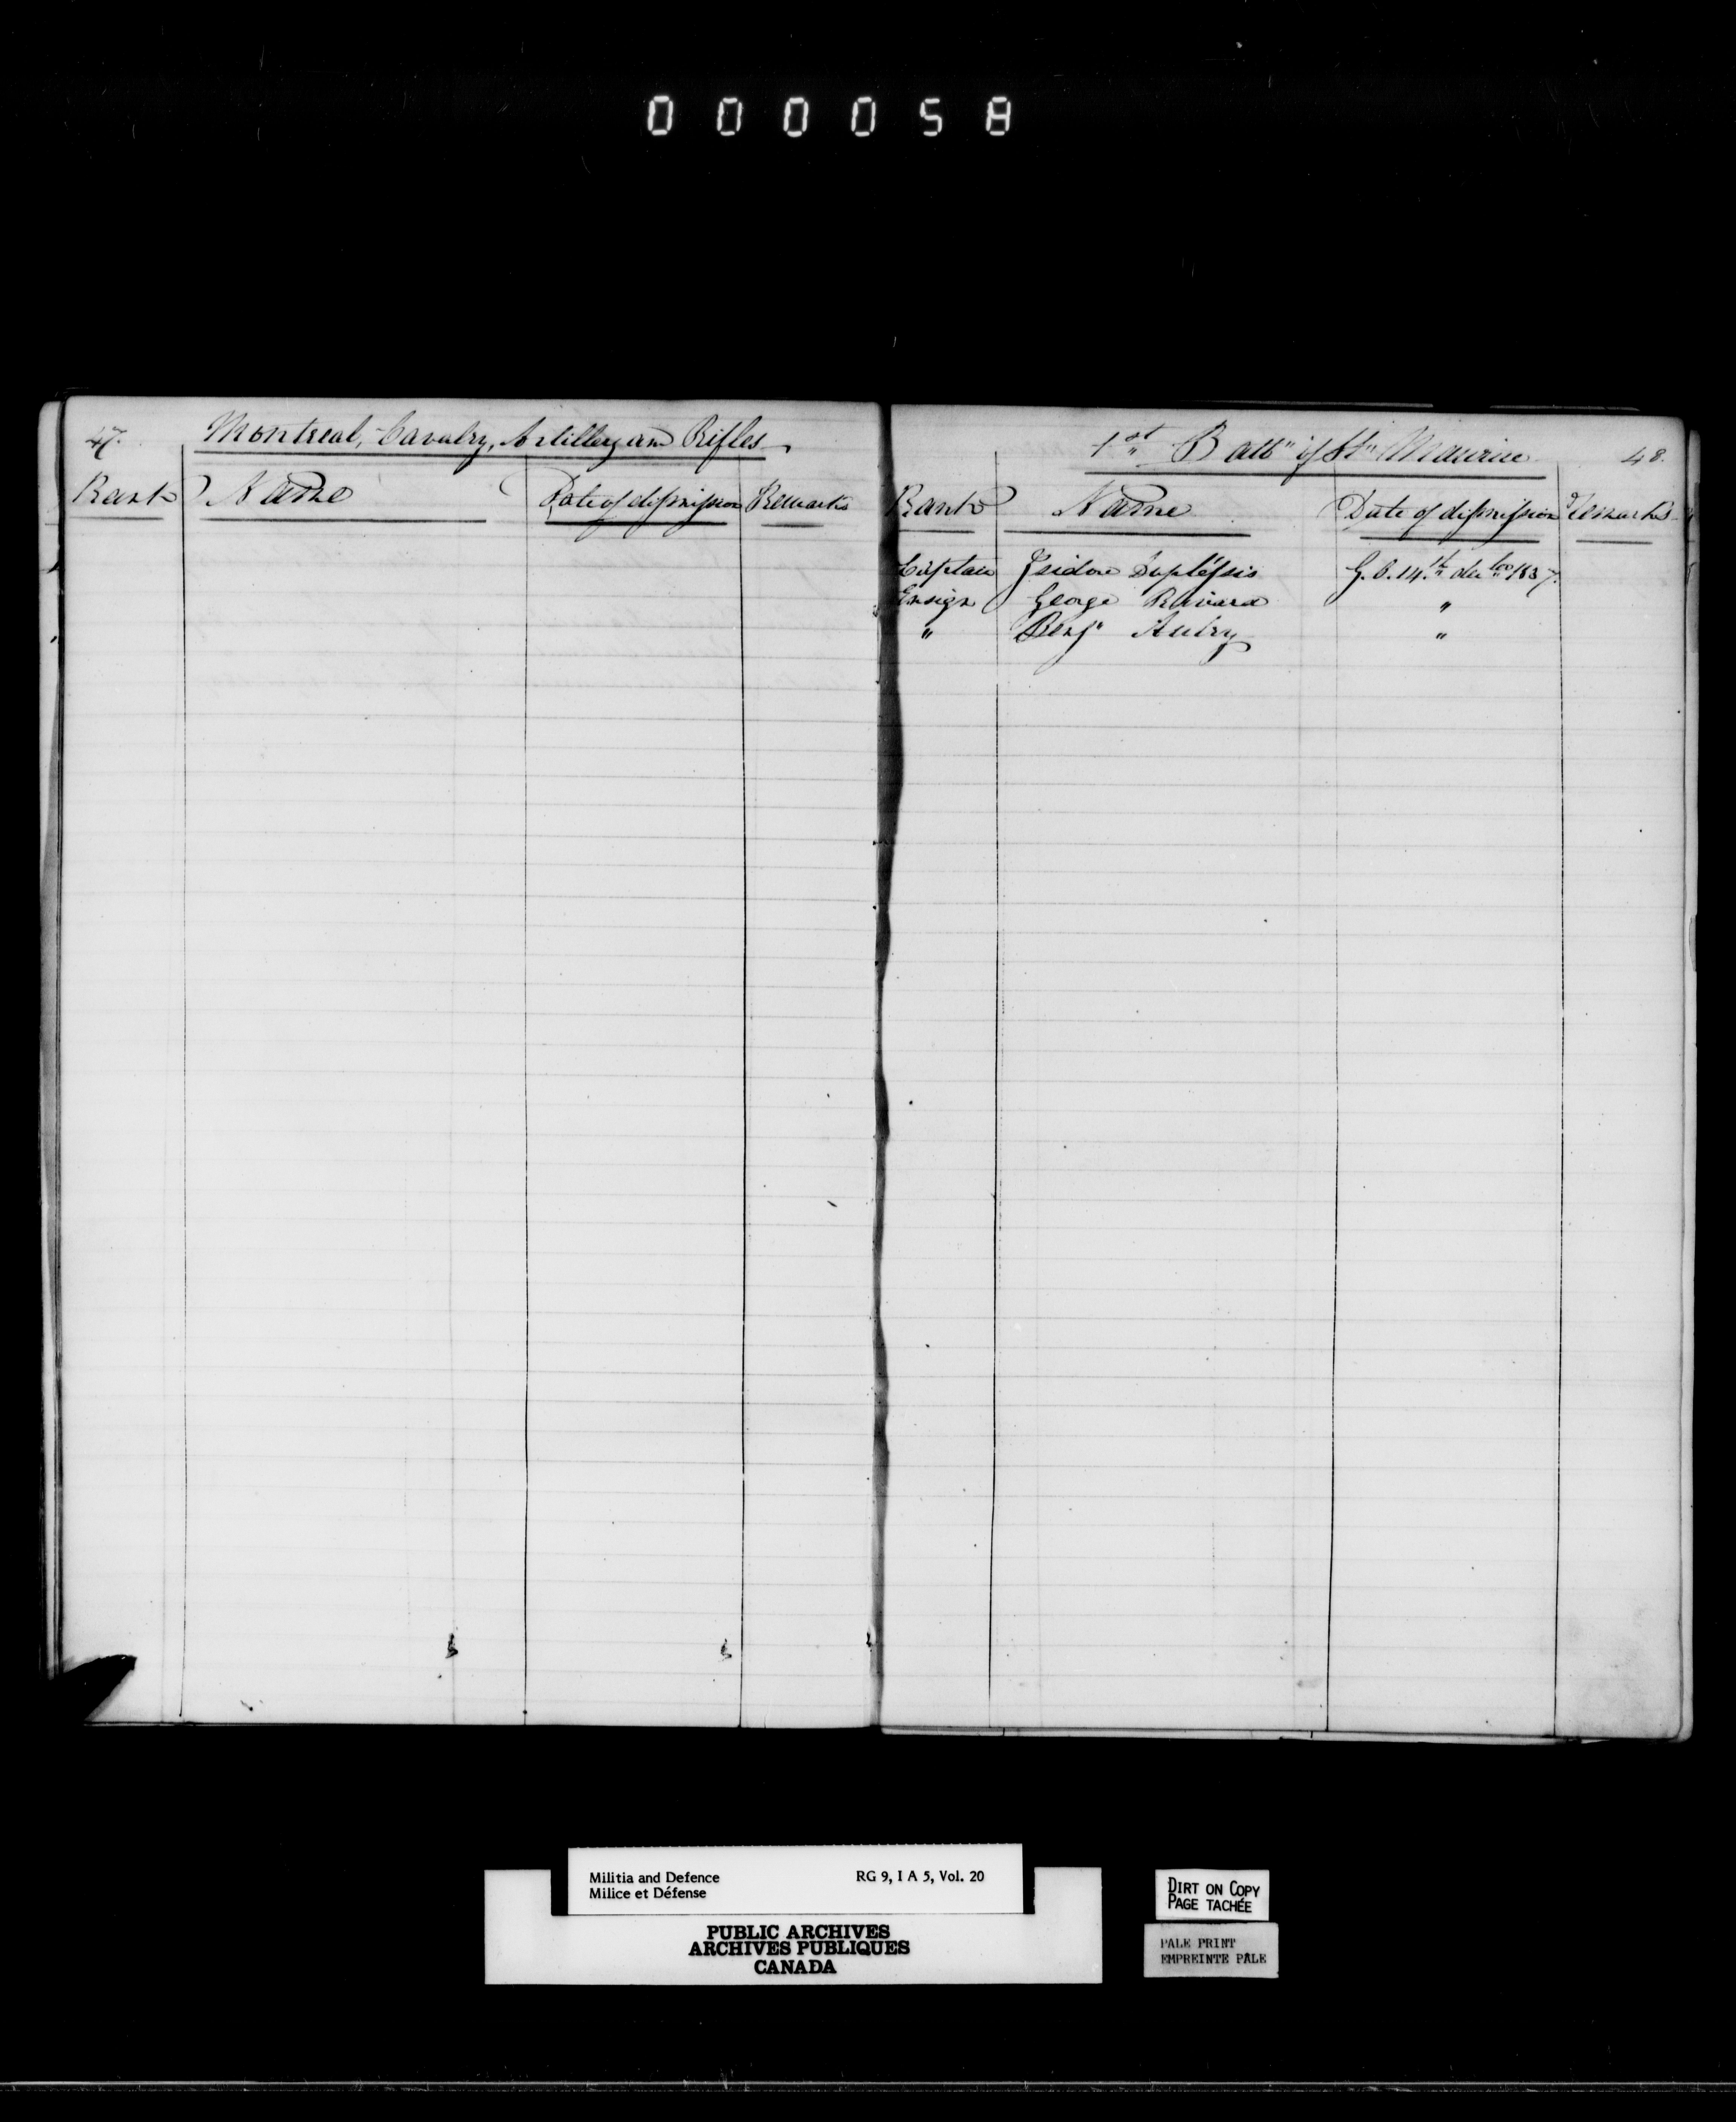 000058
47.
Montreal, Cavalry, Artillery and Rifles
Rank Name Date of dismission Remarks
1st Battn of St Maurice
48.
Rank Name Date of dismission Remarks
Captain Isidore Duplessis G.O. 14th decbre 1837.
Ensign George Rivard "
" Benjn Aubry "
Militia and Defence RG 9, I A 5, Vol. 20
Milice et Défense
PUBLIC ARCHIVES
ARCHIVES PUBLIQUES
CANADA
DIRT ON COPY
PAGE TACHÉE
PALE PRINT
EMPREINTE PÂLE